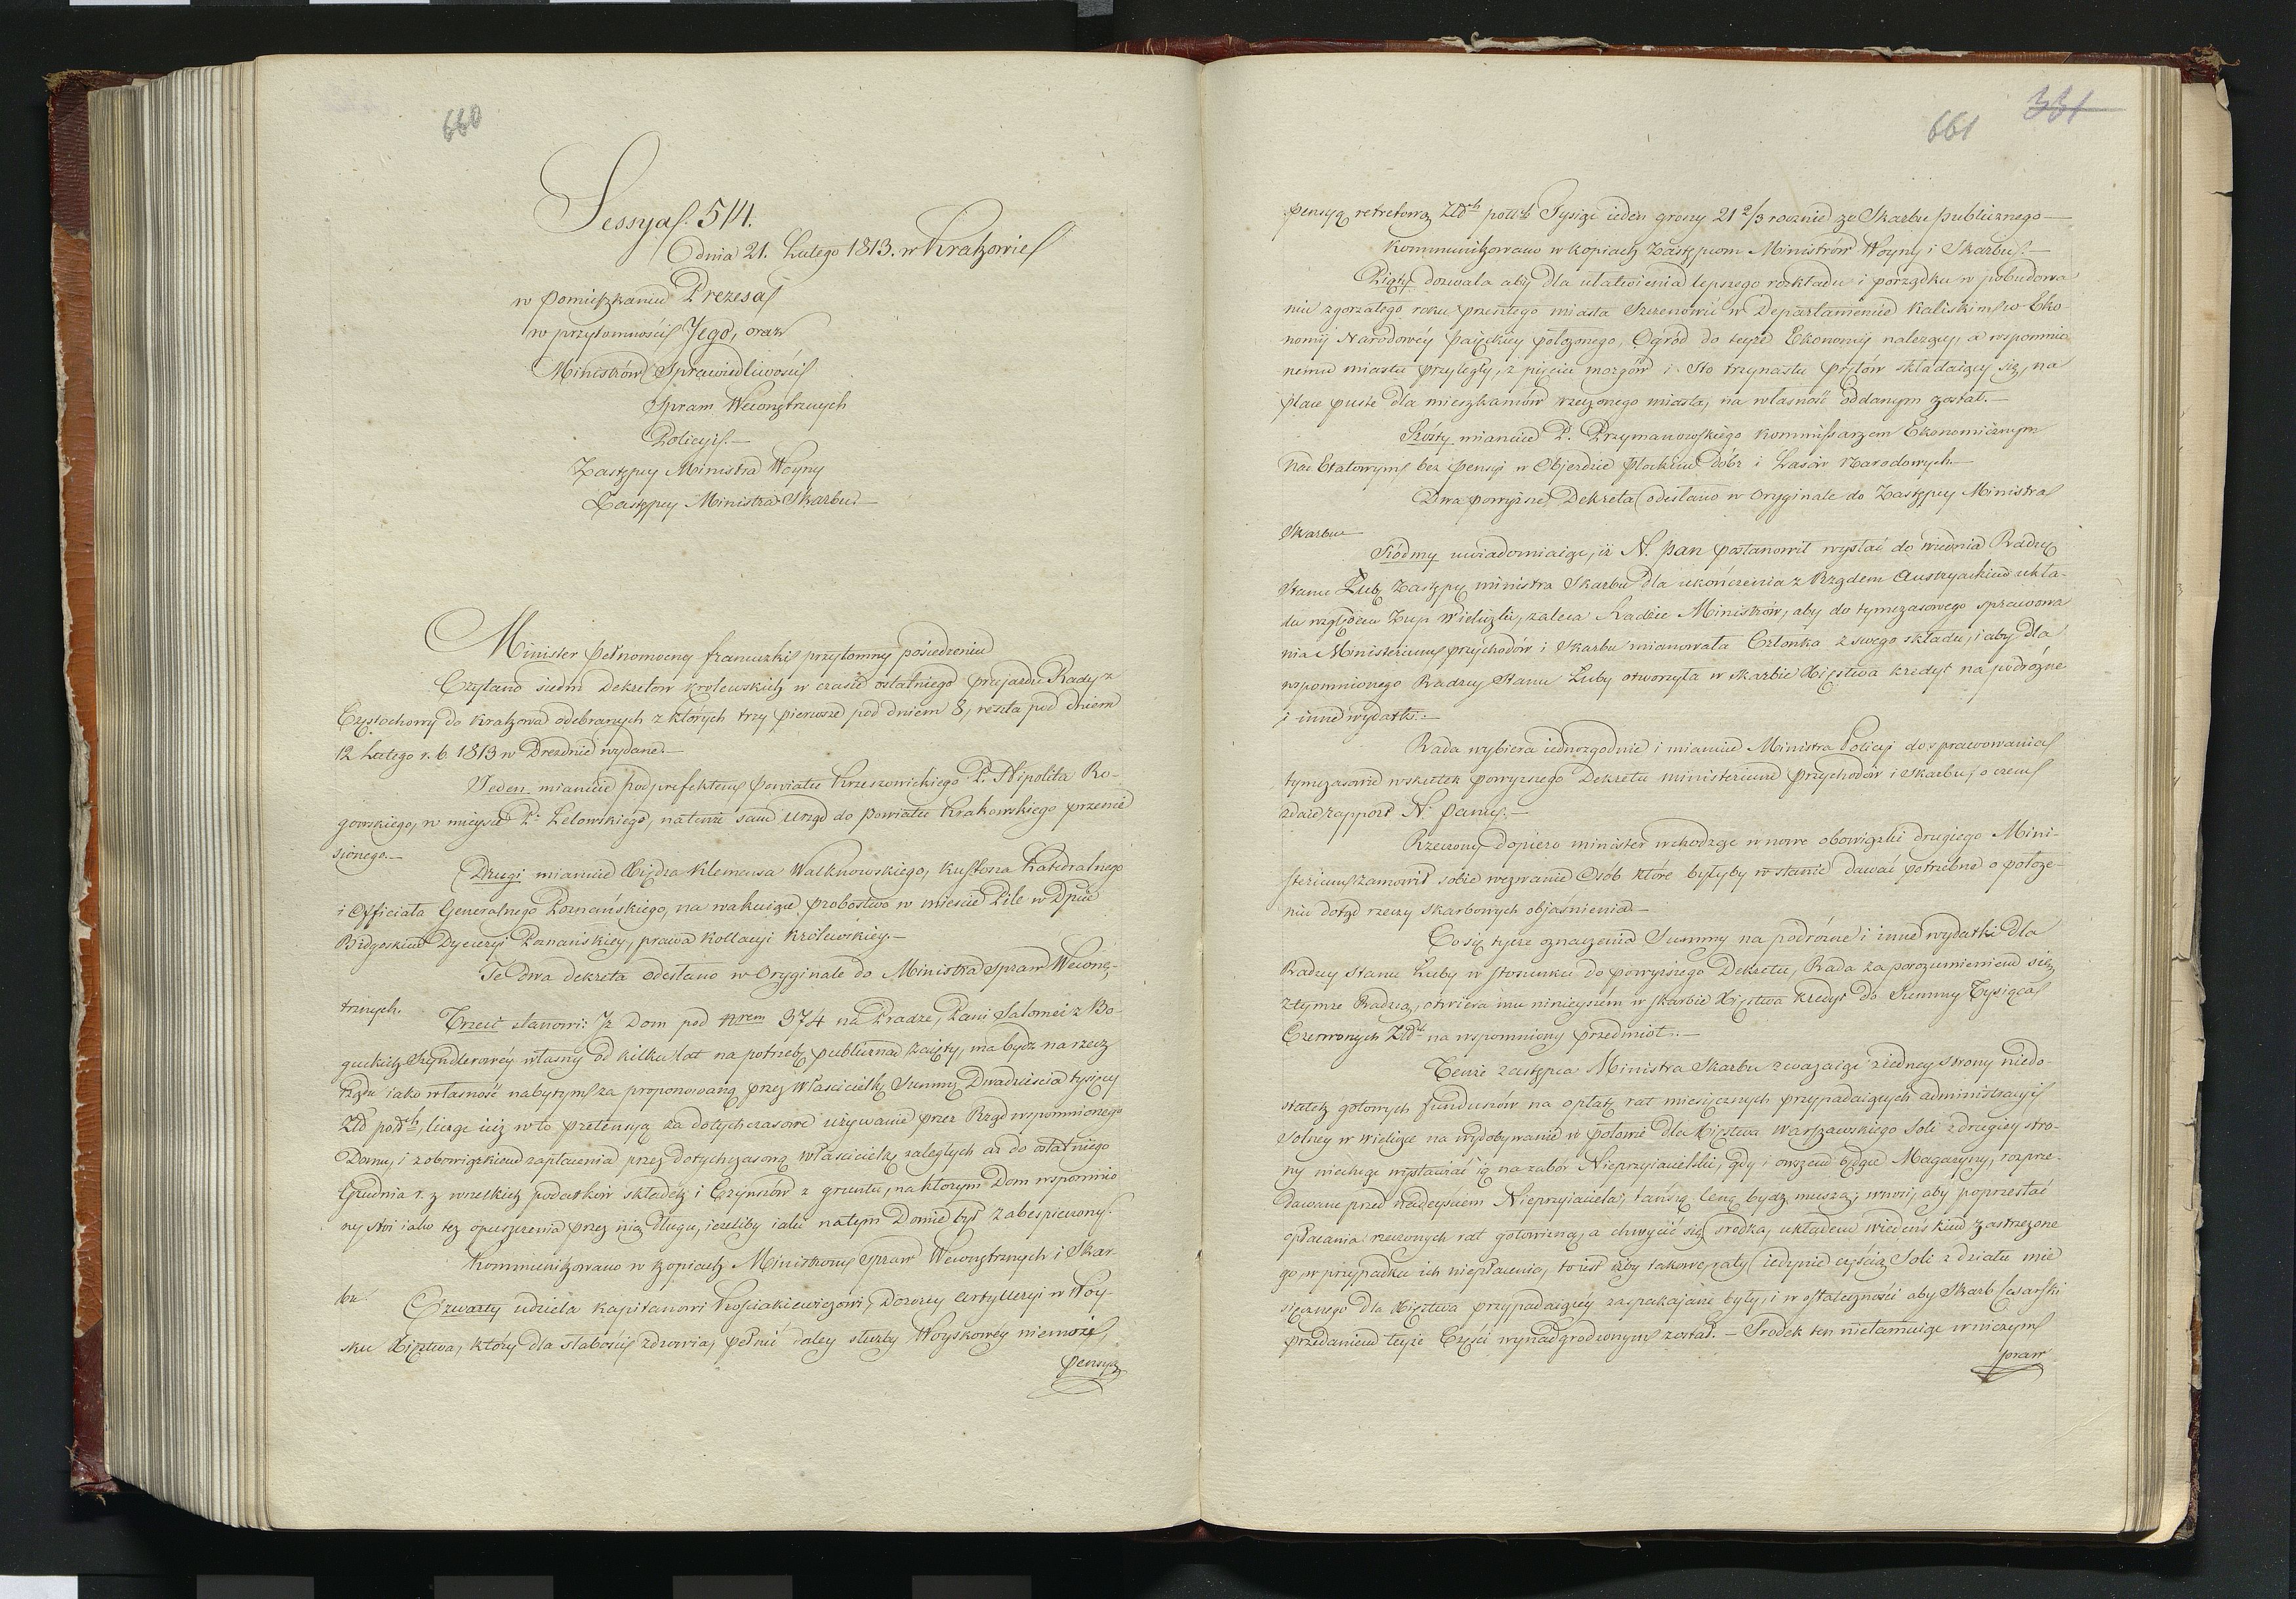 660
Sessya 514.
dnia 21. Lutego 1813. w Krakowie
w pomieszkaniu Prezesa
w przytomności Jego, oraz
Ministrów Sprawiedliwości
Spraw Wewnętrznych
Policyi.—
Zastępcy Ministra Woyny
Zastępcy Ministra Skarbu.—
Minister pełnomocny francuzki przytomny posiedzeniu
Czytano siedm Dekretów królewskich w czasie ostatniego przejazdu Rady z
Częstochowy do Krakowa odebranych z których trzy pierwsze pod dniem 8, reszta pod dniem
12 Lutego r. b. 1813 w Dreznie wydane.—
Jeden. mianuie podprefektem powiatu Krzeszowickiego P. Hipolita Ro-
gowskiego, w mieysce P. Zelowskiego, na tenże sam Urząd do powiatu Krakowskiego przenie
sionego.—
Drugi mianuie Xiędza Klemensa Walknowskiego, kustosza Katedralnego
i Officiała Generalnego Poznańskiego, na wakuiące probostwo w mieście Pile w Dpcie
Bydgoskim Dyecezyi Poznańskiey, prawa kollacyi Królewskiey.—
Te dwa dekreta odesłano w Oryginale do Ministra Spraw Wewnę-
trznych.
Trzeci stanowi: Iż Dom pod Nrem 374 na Pradze, Pani Salomei z Bo-
guckich Szyndlerowéy własny od kilku lat na potrzebę publiczną zaięty, ma bydź na rzecz
rządu iako własność nabytym za proponowaną przez Właścicielkę Summę Dwadzieścia tysięcy
Złł polsh, licząc iuż w to pretensyą za dotychczasowe używanie przez Rząd wspomnionego
Domu, i z obowiązkiem zapłacenia przez dotychczasową Właścicielkę zaległych aż do ostatniego
Grudnia r. z wszelkich podatków składek i Czynszów z gruntu, na którym Dom wspomnio
ny stoi iako też opuszczenia przez nią długu, ieżeliby iaki na tym Domie był zabespieczony.
Kommunikowano w kopiach Ministrom Spraw Wewnętrznych i Skar-
bu.
Czwarty udziela kapitanowi Kościakiewiczowi, Dozorcy Artylleryi w Woy-
sku Xięztwa, który dla słabości zdrowia, pełnić daley służby Woyskowéy niemoże,
pensyą
661
331
pensyą retretową Złłch polłch Tysiąc ieden groszy 21 2/3 rocznie ze Skarbu publicznego—
Kommunikowano w kopiach Zastępcom Ministrów Woyny i Skarbu.—
Piąty dozwala aby dla ułatwienia lepszego rozkładu i porządku w pobudowa
niu zgorzałego roku przeszłego miasta Szczercowu w Departamencie Kaliskim w Eko-
nomij Narodowéy paięckiey położonego, Ogród do teyże Ekonomij należący, a wspomnio
nemu miastu przyległy, z pięciu morgów i Sto trzynastu prętów składaiący się, na
place puste dla mieszkańców rzeczonego miasta, na własność oddanym został.—
Szósty mianuie P. Przymanowskiego Kommissarzem Ekonomicznym
nad Etatowym, bez pensyi w Objezdzie płockim dóbr i Lasów Narodowych.—
Dwa powyższe Dekreta odesłano w Oryginale do Zastępcy Ministra
Skarbu
Siódmy uwiadomiaiąc, iż N. Pan postanowił wysłać do Wiednia Radcę
Stanu Lubę Zastępcę ministra Skarbu dla ukończenia z Rządem Austryackim ukła-
du względem Żup Wieliczki, zaleca Radzie Ministrów, aby do tymczasowego sprawowa
nia Ministerium przychodów i Skarbu mianowała Członka z swego składu, i aby dla
wspomnionego Radcy Stanu Luby otworzyła w Skarbie Xięstwa kredyt na podróżne
i inne wydatki.—
Rada wybiera iednozgodnie i mianuie Ministra Policyi do sprawowania
tymczasowie w skutek powyższego Dekretu ministerium przychodów i Skarbu, o czem
zdaie rapport N. Panu.—
Rzeczony dopiero minister wchodząc w nowe obowiązki drugiego Mini-
sterium zamówił sobie wezwanie Osób które byłyby w stanie dawać potrzebne o położe-
niu dotąd rzeczy skarbowych objaśnienia.—
Co się tycze oznaczenia Summy na podróżne i inne wydatki dla
Radcy Stanu Luby w stosunku do powyższego Dekretu, Rada za porozumieniem się
z tymże Radzcą, otwiera mu ninieyszém w Skarbie Xięztwa kredyt do Summy Tysiąca
Czerwonych Złłch na wspomniony przedmiot.—
Tenże zastępca Ministra Skarbu zważaiąc z iedney strony niedo-
statek gotowych funduszów na opłatę rat miesięcznych przypadaiących administracyi
Solney w Wieliczce na wydobywanie w połowie dla Xięztwa Warszawskiego Soli z drugiey stro-
ny niechcąc wystawiać ią na zabór Nieprzyiacielski, gdy i owszem będące Magazyny, rozprze-
dawane przed nadeyściem Nieprzyiaciela, tańszą ceną bydź muszą, wnosi, aby poprzestać
opłacania rzeczonych rat gotowizną, a chwycić się środka, układem wiedeńskim zastrzeżone
go, w przypadku ich niepłacenia, to iest ażby takowe raty iedynie częścią Soli z działu mie
sięcznego dla Xięztwa przypadaiącéy zaspakajane były, i w ostateczności aby Skarb Cesarski
przedaniem teyże Części wynadgrodzonym został.— Środek ten nietamuiąc w niczym
praw